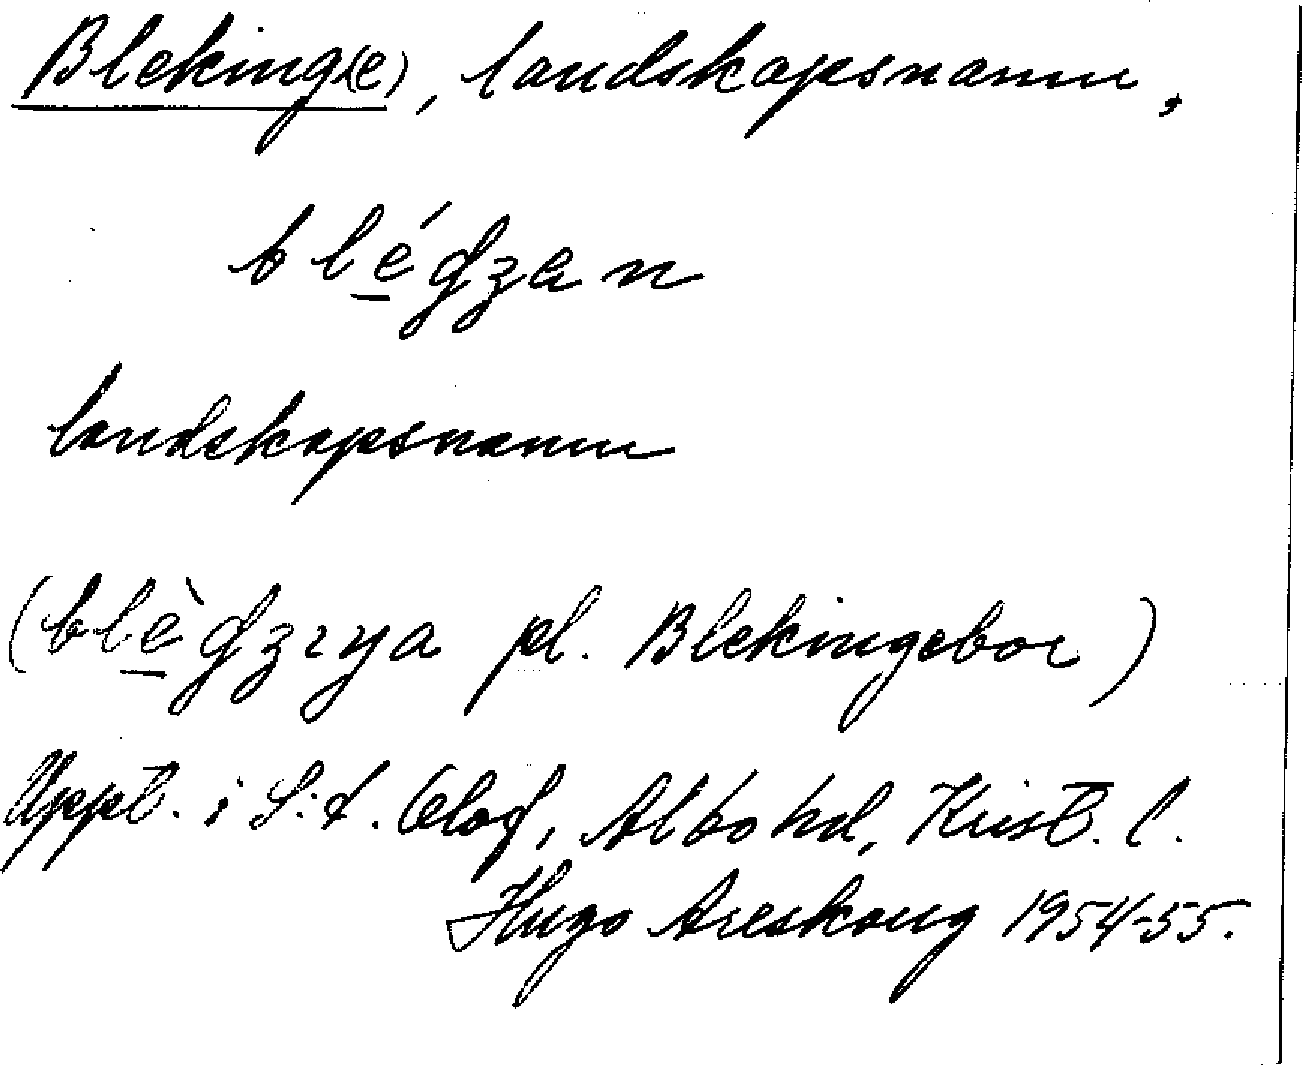 Bleking(e), landskapsnamn,
blé̱ʠzan
landskapsnamn
(blè̱ʠzıya pl. Blekingebor)
Uppt. i S:t. Olof, Albo hd, Krist. l.
Hugo Areskoug 1954-55.